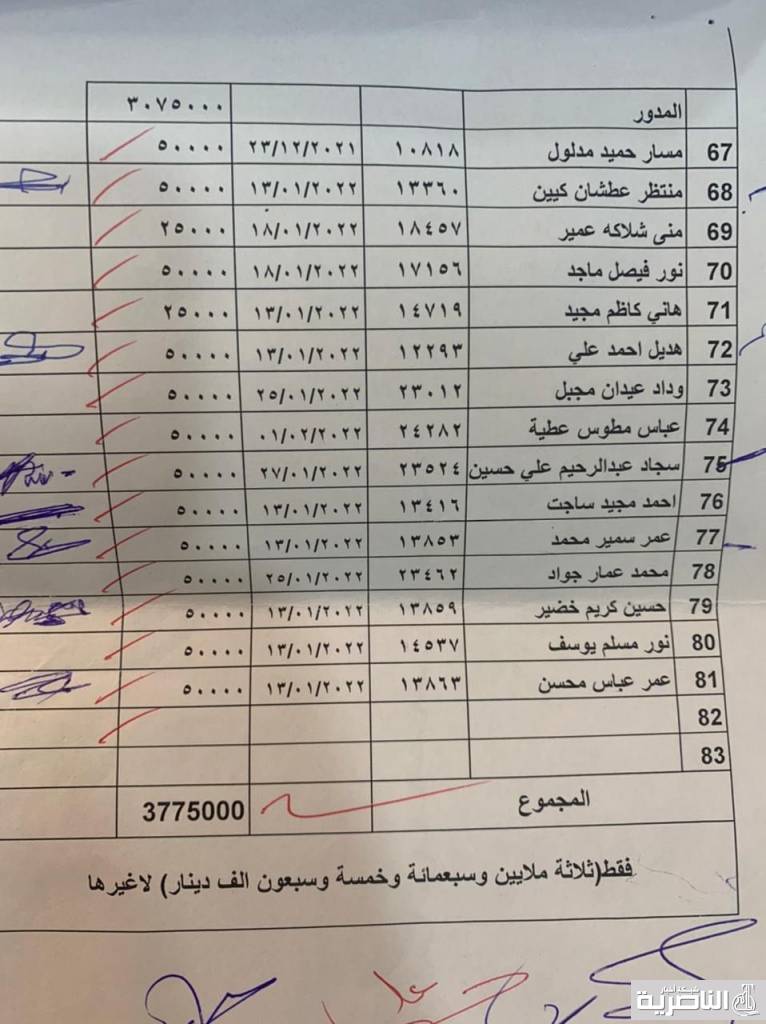 المدور ٣٠٧٥٠٠٠
67 مسار حميد مدلول ١٠٨١٨ ٢٣/١٢/٢٠٢١ ٥٠٠٠٠
68 منتظر عطشان كيين ١٣٣٦٠ ١٣/٠١/٢٠٢٢ ٥٠٠٠٠
69 منى شلاكه عمير ١٨٤٥٧ ١٨/٠١/٢٠٢٢ ٢٥٠٠٠
70 نور فيصل ماجد ١٧١٥٦ ١٨/٠١/٢٠٢٢ ٥٠٠٠٠
71 هاني كاظم مجيد ١٤٧١٩ ١٣/٠١/٢٠٢٢ ٢٥٠٠٠
72 هديل احمد علي ١٢٢٩٣ ١٣/٠١/٢٠٢٢ ٥٠٠٠٠
73 وداد عيدان مجبل ٢٣٠١٢ ٢٥/٠١/٢٠٢٢ ٥٠٠٠٠
74 عباس مطوس عطية ٢٤٢٨٢ ٠١/٠٢/٢٠٢٢ ٥٠٠٠٠
75 سجاد عبدالرحيم علي حسين ٢٣٥٢٤ ٢٧/٠١/٢٠٢٢ ٥٠٠٠٠
76 احمد مجيد ساجت ١٣٤١٦ ١٣/٠١/٢٠٢٢ ٥٠٠٠٠
77 عمر سمير محمد ١٣٨٥٣ ١٣/٠١/٢٠٢٢ ٥٠٠٠٠
78 محمد عمار جواد ٢٣٤٦٢ ٢٥/٠١/٢٠٢٢ ٥٠٠٠٠
79 حسين كريم خضير ١٣٨٥٩ ١٣/٠١/٢٠٢٢ ٥٠٠٠٠
80 نور مسلم يوسف ١٤٥٣٧ ١٣/٠١/٢٠٢٢ ٥٠٠٠٠
81 عمر عباس محسن ١٣٨٦٣ ١٣/٠١/٢٠٢٢ ٥٠٠٠٠
82
83
المجموع 3775000
فقط(ثلاثة ملايين وسبعمائة وخمسة وسبعون الف دينار) لاغيرها
الناصرية